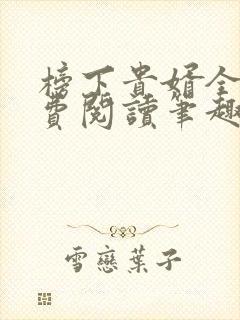 榜下貴婿全
費閱讀筆趣
雪戀葉子